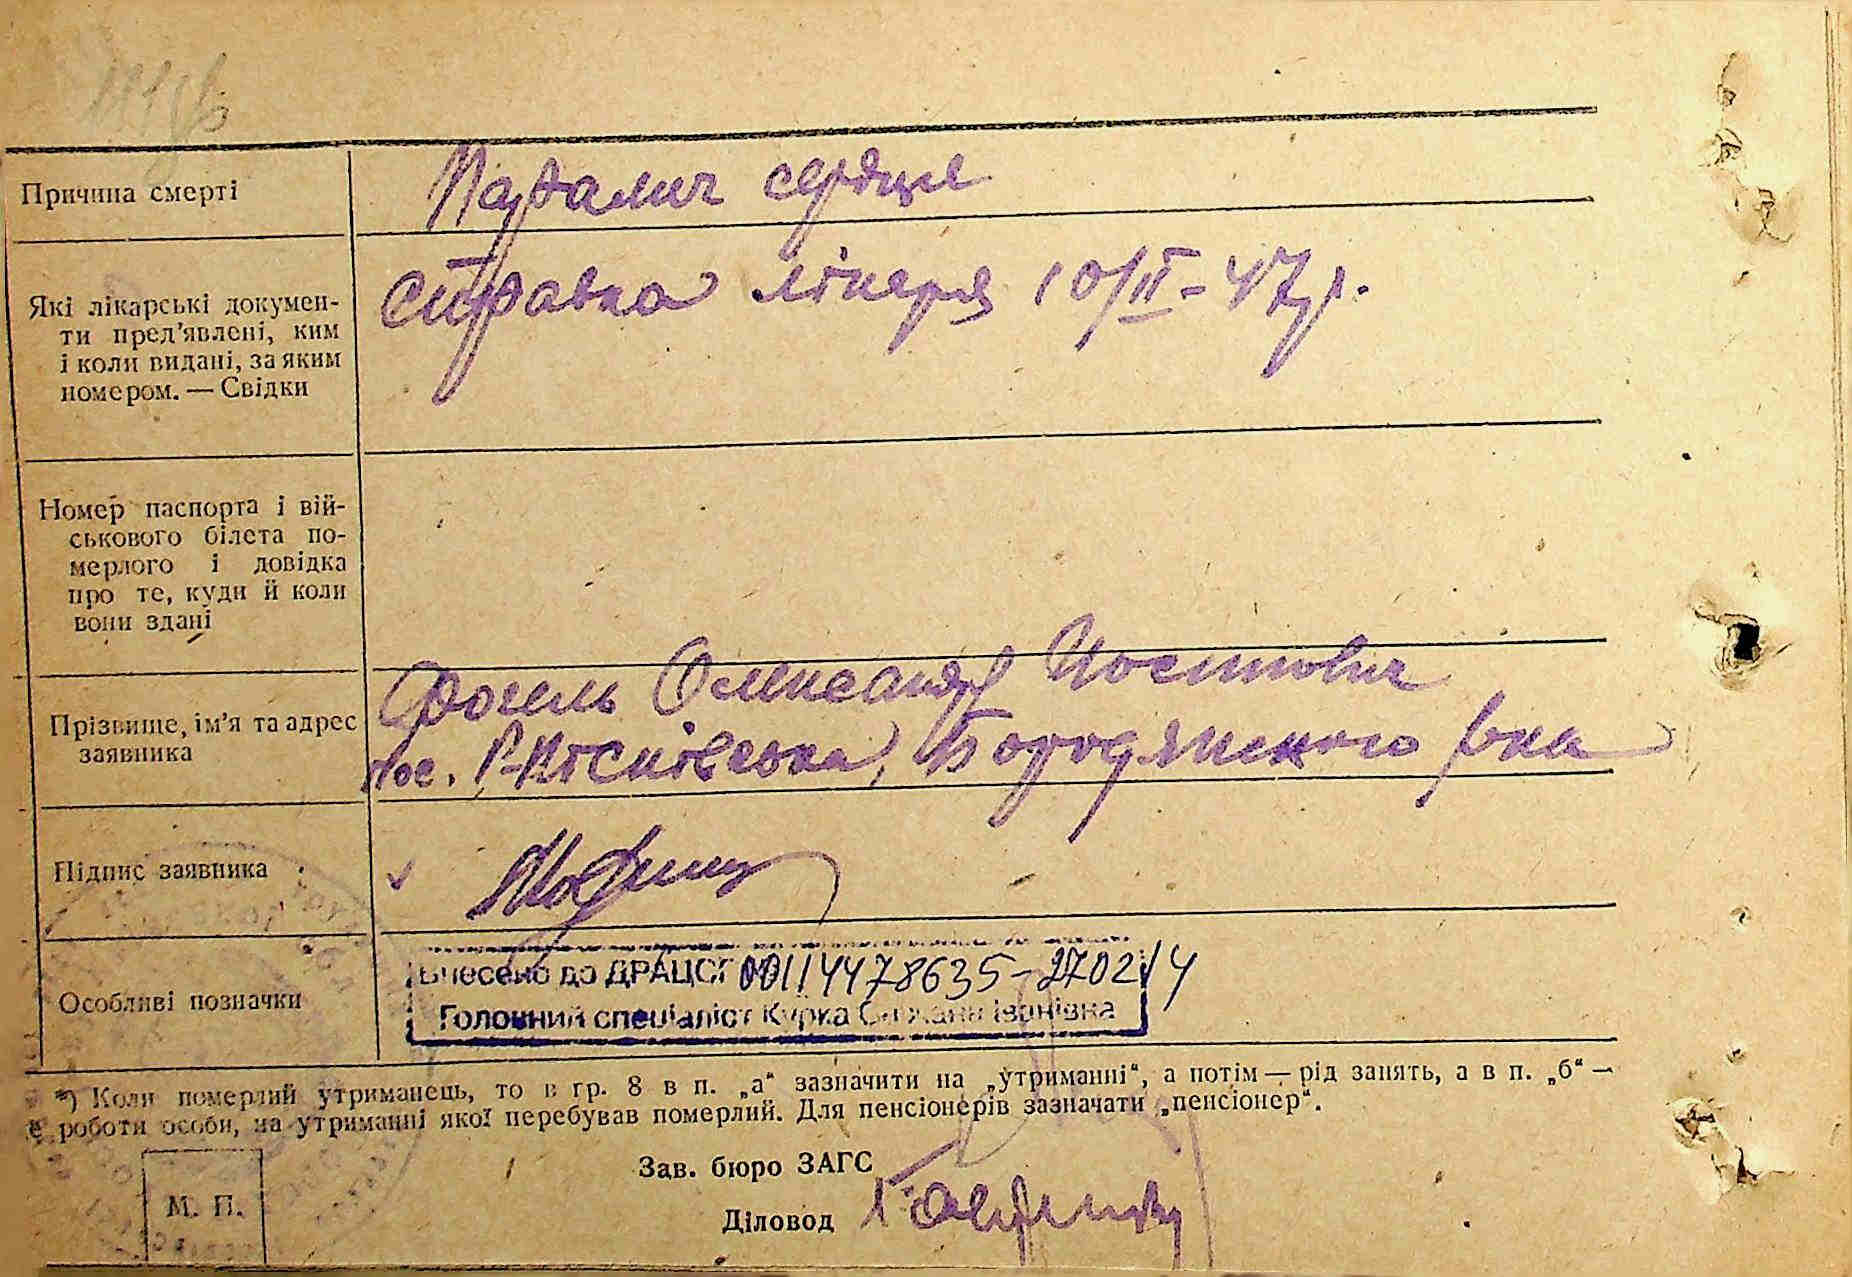 Причина смерті
Параліч серця
Які лікарські докумен-
ти пред’явлені, ким
і коли видані, за яким
номером. — Свідки
справка лікаря 10/II-47 р.
Номер паспорта і вій-
ськового білета по-
мерлого і довідка
про те, куди й коли
вони здані
Прізвище, ім’я та адрес
заявника
Фогель Олександр
пос. Бородянського р-на
Підпис заявника
Особливі позначки
Внесено до ДРАЦСГ 00114478635-270214
Головний спеціаліст Курка Іванівна
*) Коли померлий утриманець, то в гр. 8 в п. „а“ зазначити на „утриманні“, а потім — рід занять, а в п. „б“ —
є роботи особи, на утриманні якої перебував померлий. Для пенсіонерів зазначати „пенсіонер“.
Зав. бюро ЗАГС
М. П.
Діловод